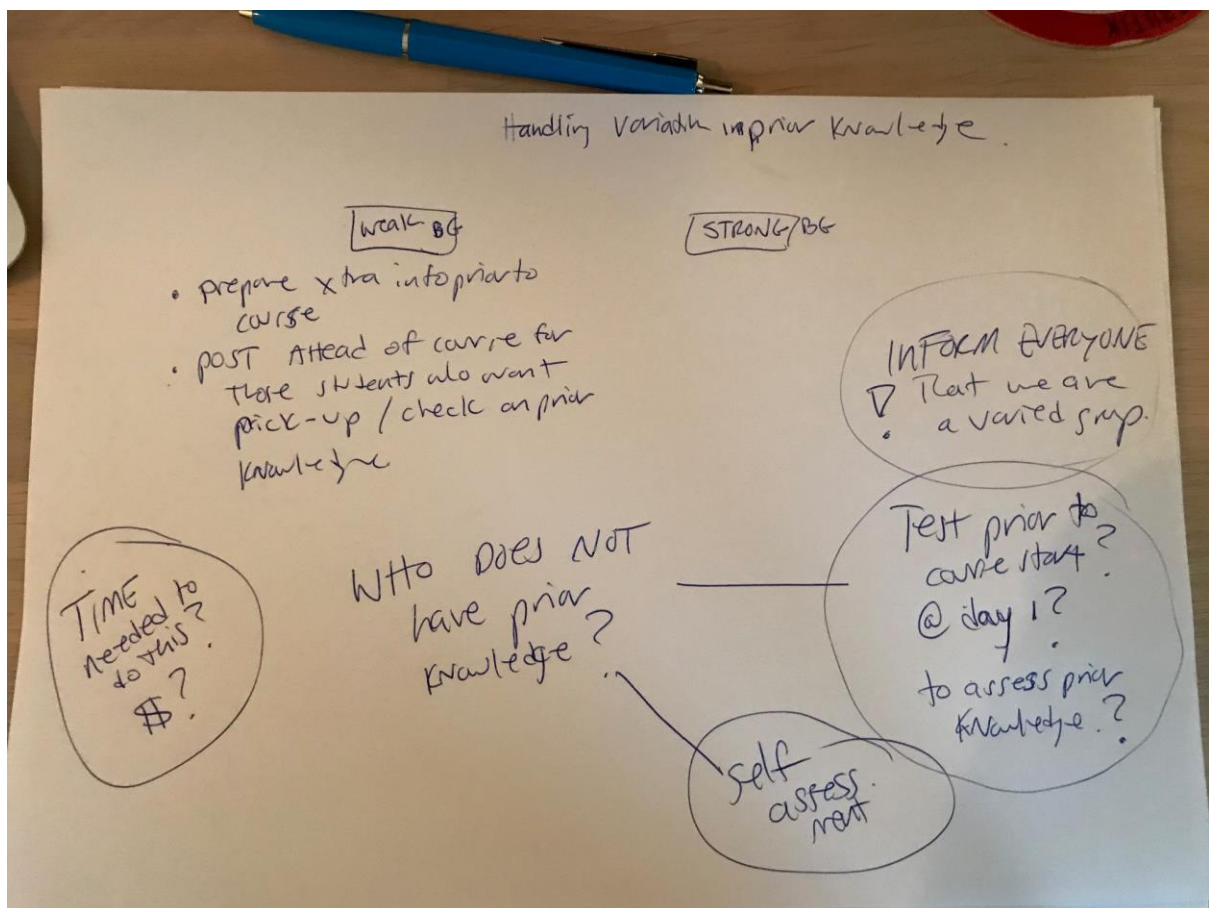 Handling Variation in prior Knowledge.
Weak BG
STRONG/BG
• prepare xtra info prior to
course
• POST AHead of course for
those students who want
prick-up / check on prior
knowledge
INFORM EVERYONE
! That we are
a varied group.
TIME
needed to
do this?
$?
WHO DOES NOT
have prior
knowledge?
Test prior to
course start?
@ day 1?
to assess prior
knowledge?
self
assess
ment